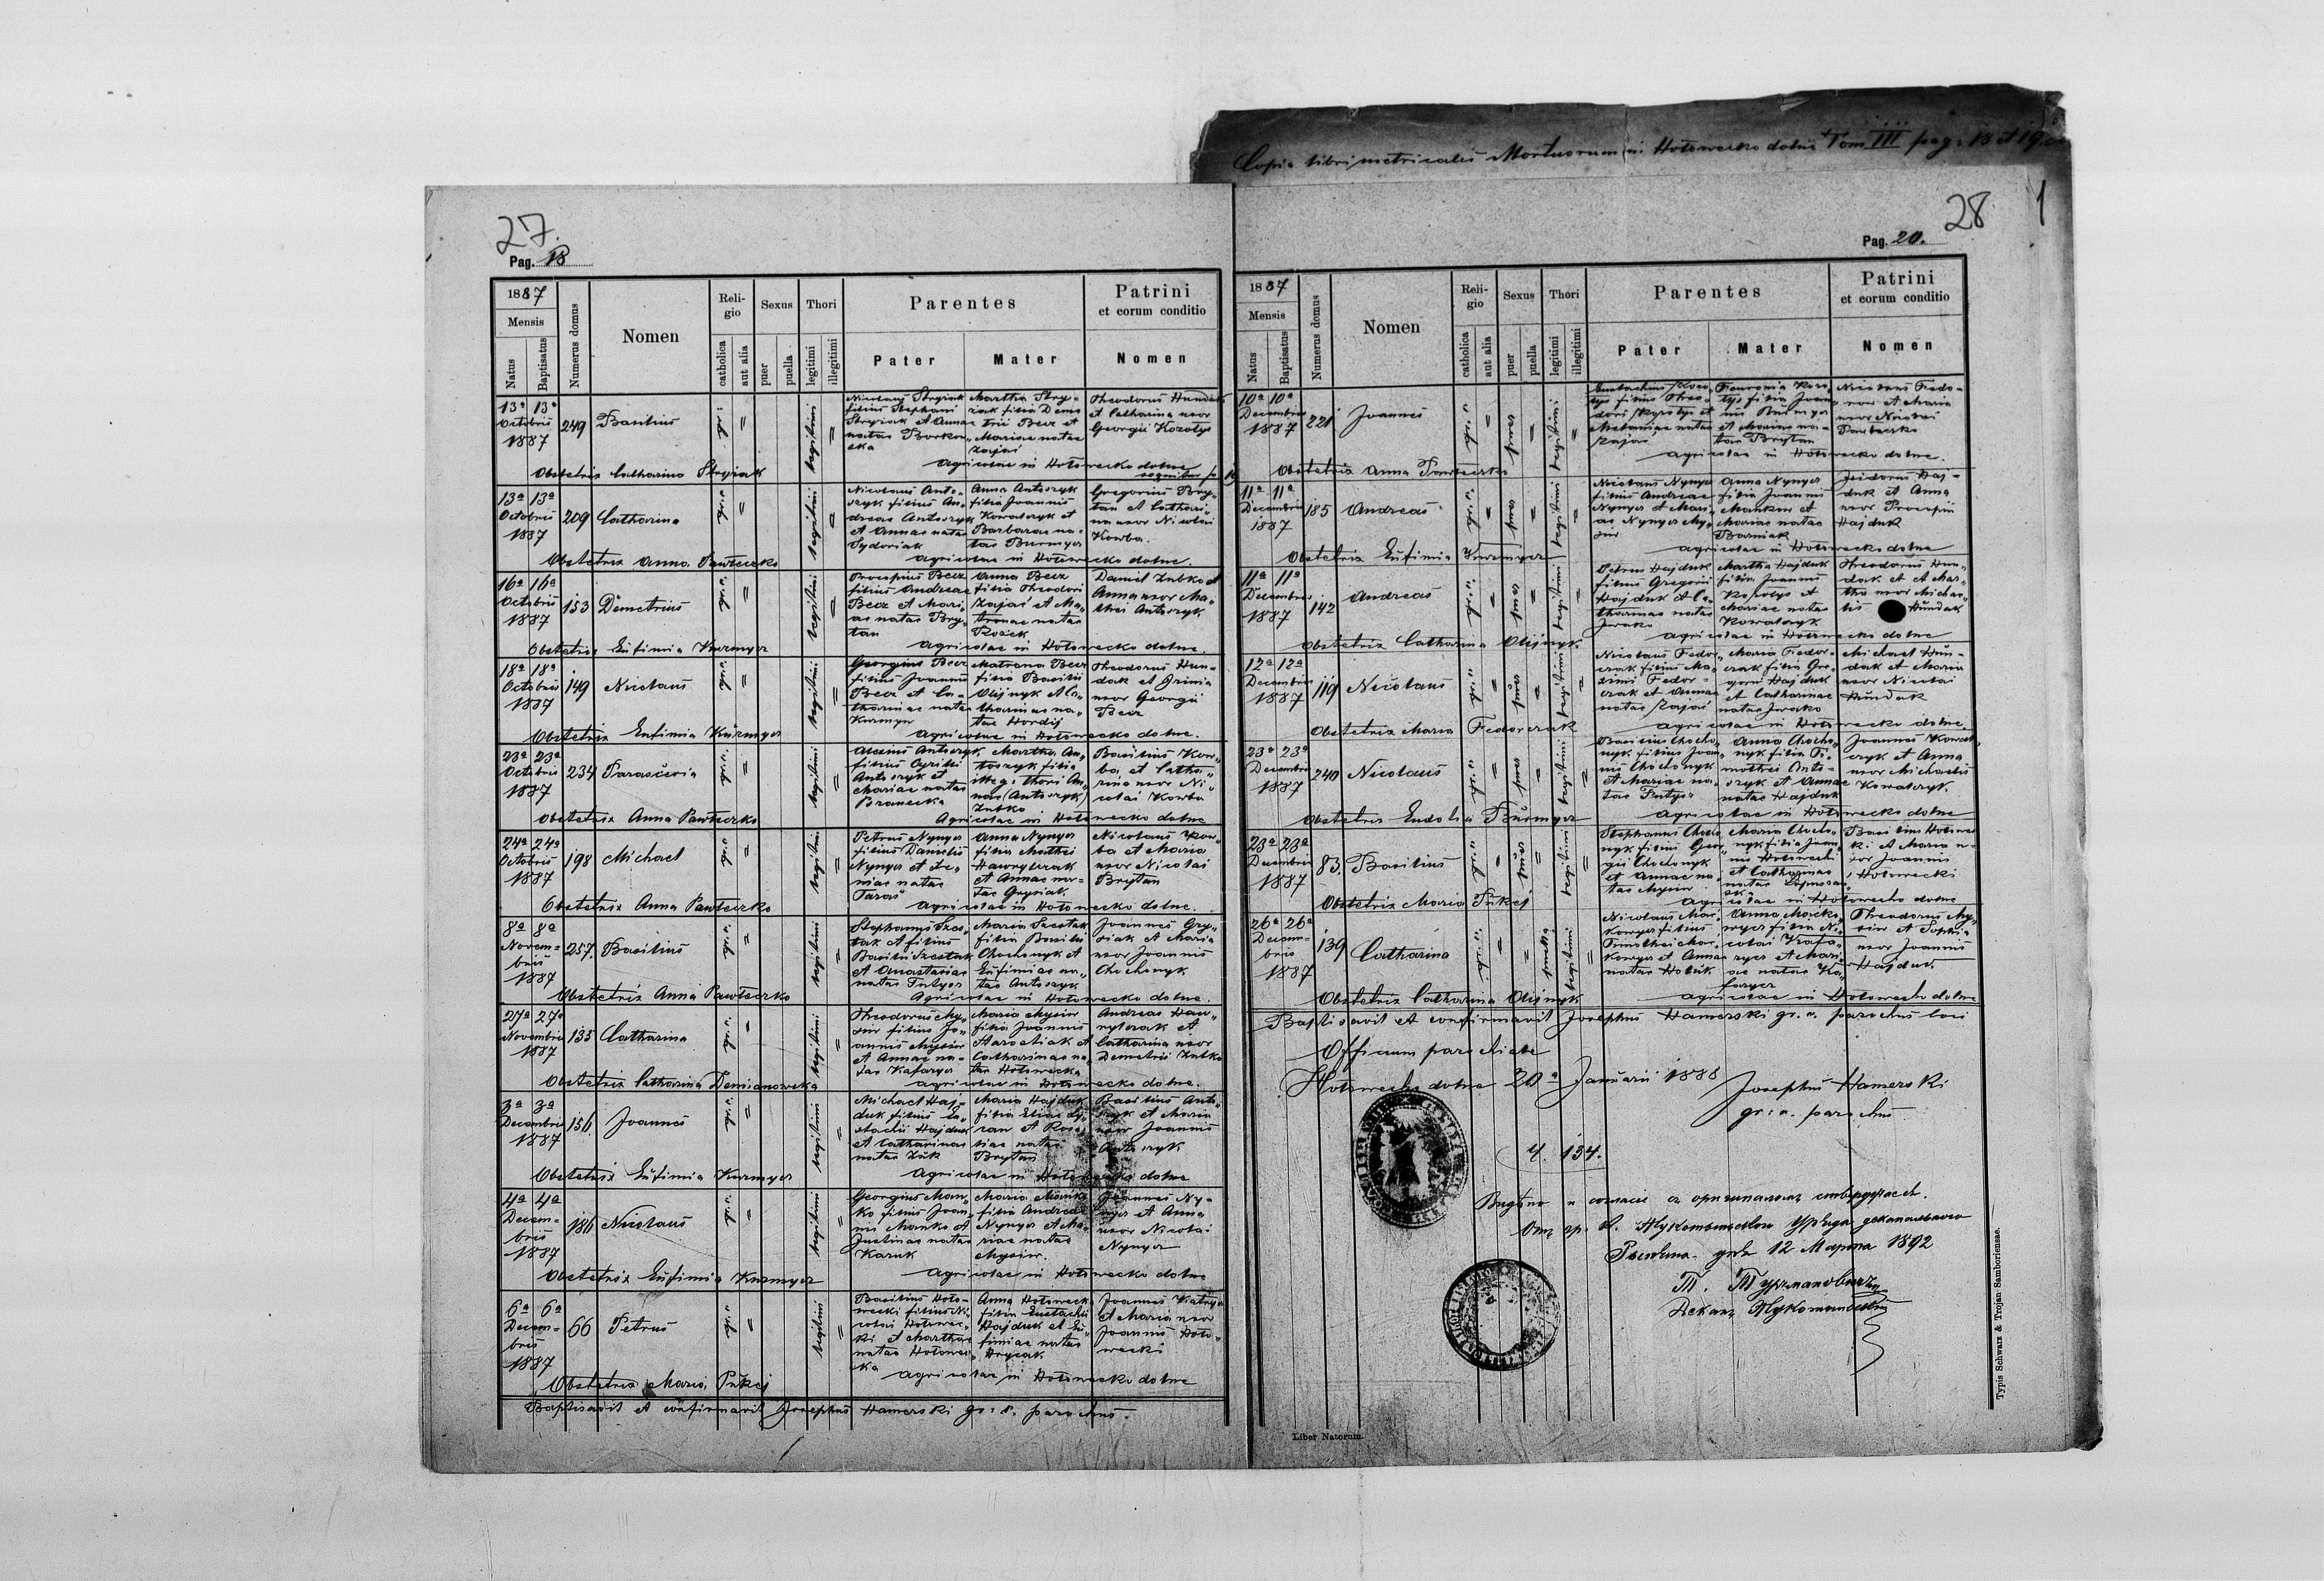 Copia libri metricalis Mortuorum in Hołowecko dolne Tom III pag. 18 et 19
27.
Pag. 18
1887
Mensis
Natus
Baptisatus
Numerus domus
Nomen
Religio
catholica
aut alia
Sexus
puer
puella
Thori
legitimi
illegitimi
Parentes
Pater
Mater
Patrini
et eorum conditio
Nomen
13a 13a
Octobris
1887
249
Basilius
gr. c.
legitimi
Nicolaus Stryiak
filius Stephani
Stryiak et Annae
natae
Martha Stry-
iak filia Deme
trii Becz et
Mariae natae
Zajać
Theodorus Hundak
et Catharina uxor
Georgii Korotys
agricolae in Hołowecko dolne
Obstetrix Catharina Stryiak
13a 13a
Octobris
1887
209
Catharina
gr. c.
legitimi
Nicolaus Anto-
szyk filius An-
dreae Antoszyk
et Annae natae
Sydoriak
Anna Antoszyk
filia Joannis
Kowalczyk et
Barbarae na-
tae Burmycz
Gregorius Bry-
tan et Cathari-
na uxor Nicolai
Kowba
Obstetrix Anna Pawłeczko
agricolae in Hołowecko dolne
16a 16a
Octobris
1887
153
Demetrius
gr. c.
legitimi
Procopius Becz
filius Andreae
Becz et Mari-
ae natae Bry-
tan
Anna Becz
filia Theodori
Zajać et Ma-
tronae natae
Daniel Zubko et
Anna uxor Ma-
thei Antoszyk
Obstetrix Eufimia Kurmycz
agricolae in Hołowecko dolne
18a 18a
Octobris
1887
149
Nicolaus
gr. c.
legitimi
Georgius Becz
filius Joannis
Becz et Ca-
tharinae natae
Kurmycz
Matrona Becz
filia Basilii
Olijnyk et Ca-
tharinae na-
tae Hordij
Theodorus Hun-
dak et Irinia
uxor Georgii
Becz
Obstetrix Eufimia Kurmycz
agricolae in Hołowecko dolne.
23a 23a
Octobris
1887
234
Parascevia
gr. c.
legitimi
Alexius Antoszyk
filius Cyrilli
Antoszyk et
Mariae natae
Martha An-
toszyk filia
illeg: thori An-
nae (Antoszyk)
Zubko
Basilius Kow-
ba et Catha-
rina uxor Ni-
colai Kowba
Obstetrix Anna Pawłeczko
Agricolae in Hołowecko dolne
24a 24a
Octobris
1887
198
Michael
gr. c.
legitimi
Petrus Nynycz
filius Danielis
Nynycz et Xe-
niae natae
Taras
Anna Nynycz
filia Mathei
Hawrylczak
et Annae na-
tae Grysiak
Nicolaus Kow-
ba et Maria
uxor Nicolai
Brytan
Obstetrix Anna Pawłeczko
agricolae in Hołowecko dolne.
8a 8a
Novem-
bris
1887
257.
Basilius
gr. c.
legitimi
Stephanus Szes-
tak filius
Basilii Szestak
et Anastasiae
natae Putycz
Maria Szestak
filia Basilii
Chochonyk et
Eufimiae na-
tae Antoszyk
Joannes Gry-
siak et Maria
uxor Joannis
Chochonyk
Obstetrix Anna Pawłeczko
Agricolae in Hołowecko dolne.
27a 27a
Novembris
1887
135
Catharina
gr. c.
legitimi
Theodorus My-
siur filius Jo-
annis Mysiur
et Annae na-
tae Kafarycz
Maria Mysiur
filia Joannis
et
Catharinae na-
tae Hołowecka
Andreas Haw-
rylczak et
Catharina uxor
Demetrii Zubko
Obstetrix Catharina Demianowska
agricolae in Hołowecko dolne.
3a 3a
Decembris
1887
156
Joannes
gr. c.
legitimi
Michael Haj-
duk filius Eu-
stachii Hajduk
et Catharinae
natae Żuk
Maria Hajduk
filia Eliae
natae
Brytan
Basilius Anto-
szyk et Maria
uxor Joannis
Antoszyk
Obstetrix Eufimia Kurmycz
agricolae in Hołowecko dolne
4a 4a
Decem-
bris
1887
186
Nicolaus
gr. c.
legitimi
Georgius Man-
ko filius Joan-
nis Manko et
Justinae natae
Karuk
Maria Manko
filia Andreae
Nynycz et Ma-
riae natae
Mysiur.
Joannes Ny-
nycz et Anna
uxor Nicolai
Nynycz
Obstetrix Eufimia Kurmycz
agricolae in Hołowecko dolne
6a 6a
Decem-
bris
1887
66
Petrus
gr. c.
legitimi
Basilius Hoło-
wecki filius Ni-
colai Hołowec-
ki et Marthae
natae Hołowec-
ka
Anna Hołowecka
filia Eustachii
Hajduk et Eu-
fimiae natae
Hrycak
Joannes
et Maria uxor
Joannis Hoło-
wecki
Obstetrix Maria Pukej
agricolae in Hołowecko dolne
Baptisavit et confirmavit Josephus Hamerski gr: c. parochus.
28
1
Pag. 20.
1887
Mensis
Natus
Baptisatus
Numerus domus
Nomen
Religio
catholica
aut alia
Sexus
puer
puella
Thori
legitimi
illegitimi
Parentes
Pater
Mater
Patrini
et eorum conditio
Nomen
10a 10a
Decembris
1887
221
Joannes
gr. c.
puer
legitimi
Eustachius Koro-
tys filius Theo-
dori Korotys et
Melaniae natae
Zajać
Fevronia Koro-
tys filia Joan-
nis Burmycz
et Mariae na-
tae Brytan
Nicolaus Fedo-
et Maria
uxor Nicolai
Pawłeczko
agricolae in Hołowecko dolne.
Obstetrix Anna Pawłeczko
11a 11a
Decembris
1887
185
Andreas
gr. c.
puer
legitimi
Nicolaus Nynycz
filius Andreae
Nynycz et Mari-
ae Nynycz My-
siur
Anna Nynycz
filia Joannis
Mankow et
Mariae natae
Isidorus Haj-
duk et Anna
uxor Procopii
Hajduk
Obstetrix Eufimia Kurmycz
agricolae in Hołowecko dolne
11a 11a
Decembris
1887
142
Andreas
gr. c.
puer
legitimi
Petrus Hajduk
filius Gregorii
Hajduk et Ca-
tharinae natae
Iwasko
Martha Hajduk
filia Joannis
Korotys et
Mariae natae
Kowalczyk
Theodorus Hun-
dak et Mar-
tha uxor Michae-
lis Hundak
Obstetrix Catharina Olijnyk
agricolae in Hołowecko dolne
12a 12a
Decembris
1887
119
Nicolaus
gr. c.
puer
legitimi
Nicolaus Fedor-
czak filius Ma-
ximi Fedor-
czak et Annae
natae Zajać
Maria Fedor-
czak filia Gre-
gorii Hajduk
et Catharinae
natae Iwasko
Michael Hun-
dak et Maria
uxor Nicolai
Hundak
Obstetrix Maria Fedorczak
agricolae in Hołowecko dolne
23a 23a
Decembris
1887
240
Nicolaus
gr. c.
puer
legitimi
Basilius Chocho-
nyk filius Joan-
nis Chochonyk
et Mariae na-
tae Putycz
Anna Chocho-
nyk filia Ti-
mothei Anto-
szyk et Annae
natae Hajduk
Joannes Kowal-
czyk et Anna
uxor Michaelis
Kowalczyk.
Obstetrix Eudokia Burmycz
agricolae in Hołowecko dolne
23a 23a
Decembris
1887
83.
Basilius
gr. c.
puer
legitimi
Stephanus Chocho-
nyk filius Geor-
gii Chochonyk
et Annae na-
tae Mysiur
Maria Chocho-
nyk filia Joan-
nis Hołowecki
et Catharinae
natae
Basilius Hołowec-
ki et Maria u-
xor Joannis
Hołowecki
Obstetrix Maria Pukej
agricolae in Hołowecko dolne
26a 26a
Decem-
bris
1887
139
Catharina
gr. c.
puella
legitimi
Nicolaus Mac-
kowycz filius
Timothei Mac-
kowycz et Annae
natae
Anna Macko-
wycz filia Ni-
colai Kafa-
rycz et Mari-
ae natae Ka-
farycz
Theodorus My-
siur et Sophia
uxor Joannis
Hajduk.
Obstetrix Catharina Olijnyk
agricolae in Hołowecko dolne
Baptisavit et confirmavit Josephus Hamerski gr. c. parochus loci
Officium parochiale
Hołowecko dolne 20a Januarii 1888
Josephus Hamerski
gr: c. parochus
Ч. 134.
12 Марта 1892
Liber Natorum.
Typis Schwarz & Trojan Samboriensae.